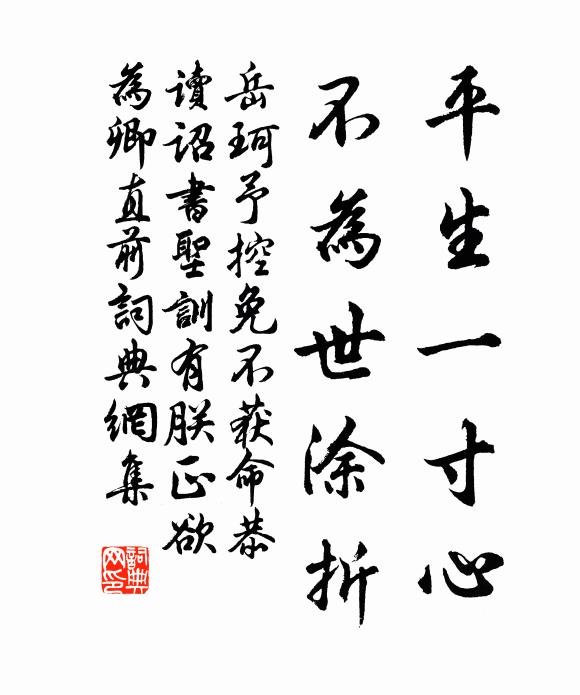 平生一寸心
不為世涂折
岳珂予控免不获命恭
讀詔書聖訓有朕正欲
為卿直前詞典網集
詞典网印